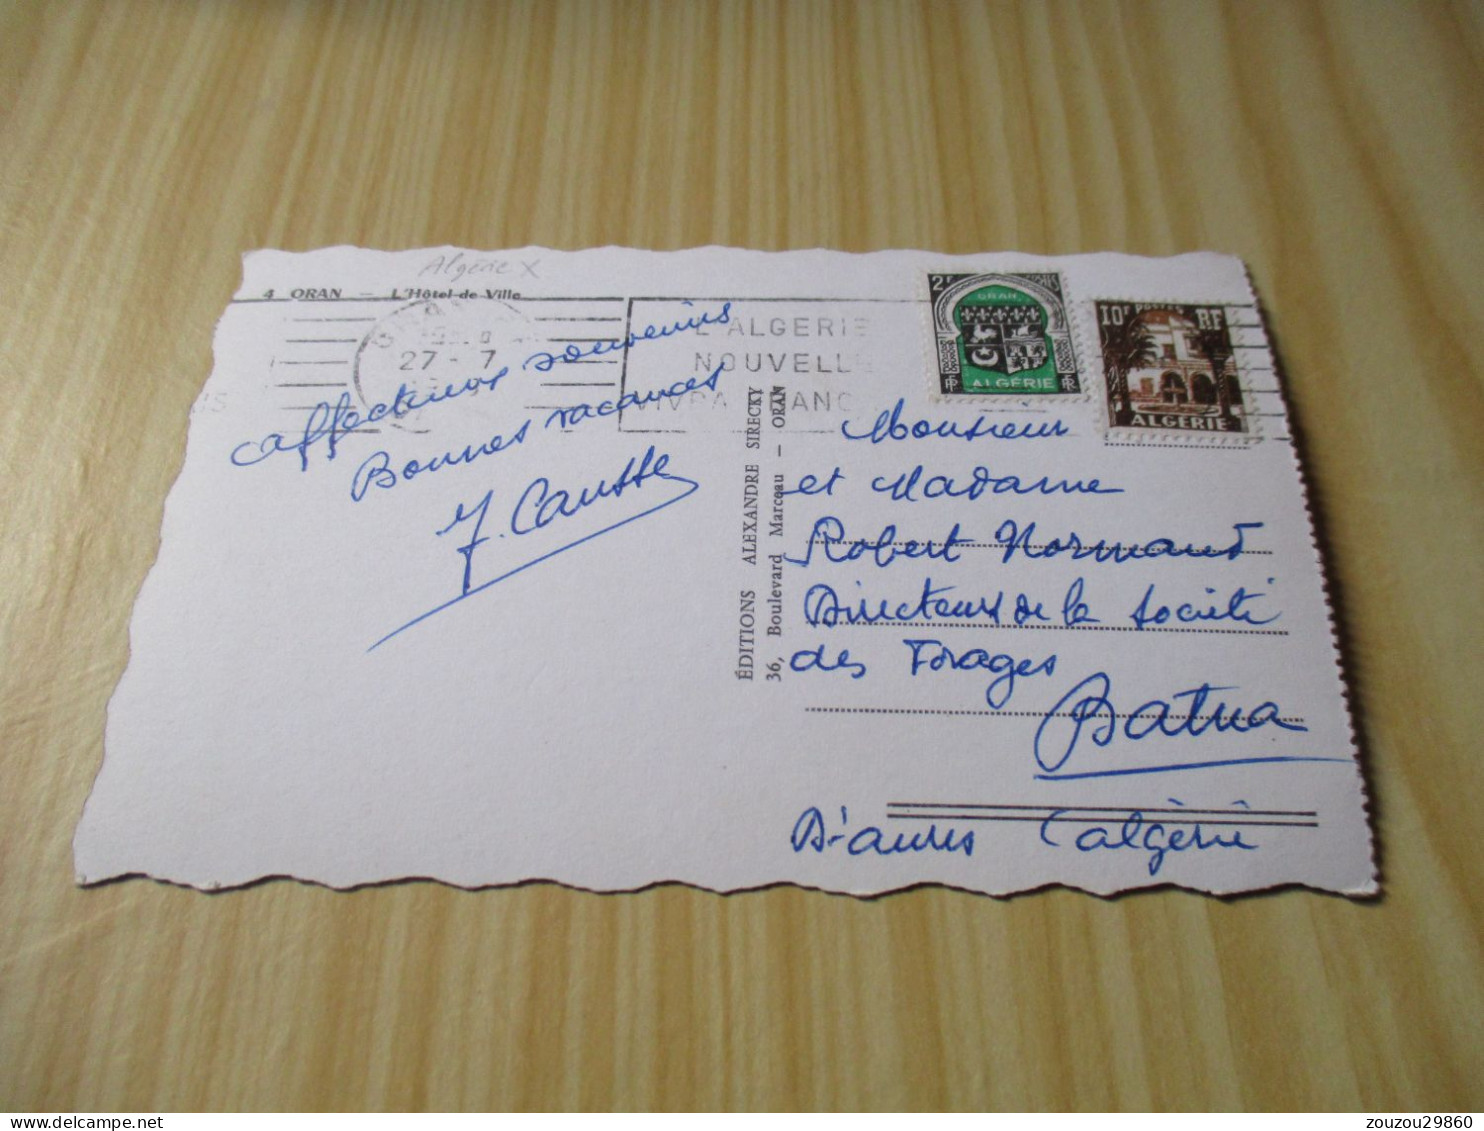 Algérie X
4 ORAN — L'Hôtel de Ville
27 - 7
L'ALGERIE
NOUVELLE
VIVRA
affectueux souvenirs
Bonnes vacances
J. Causse
ÉDITIONS ALEXANDRE SIRECKY
36, Boulevard Marceau - ORAN
2F
ORAN
ALGÉRIE
10F postes RF
ALGERIE
Monsieur
et Madame
Robert Normand
Directeur de la Société
des Forages
Batna
(Algérie
zouzou29860